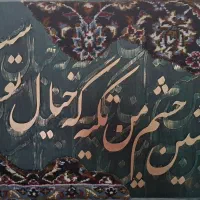 نشین چشم من تکیه گه خیال تو